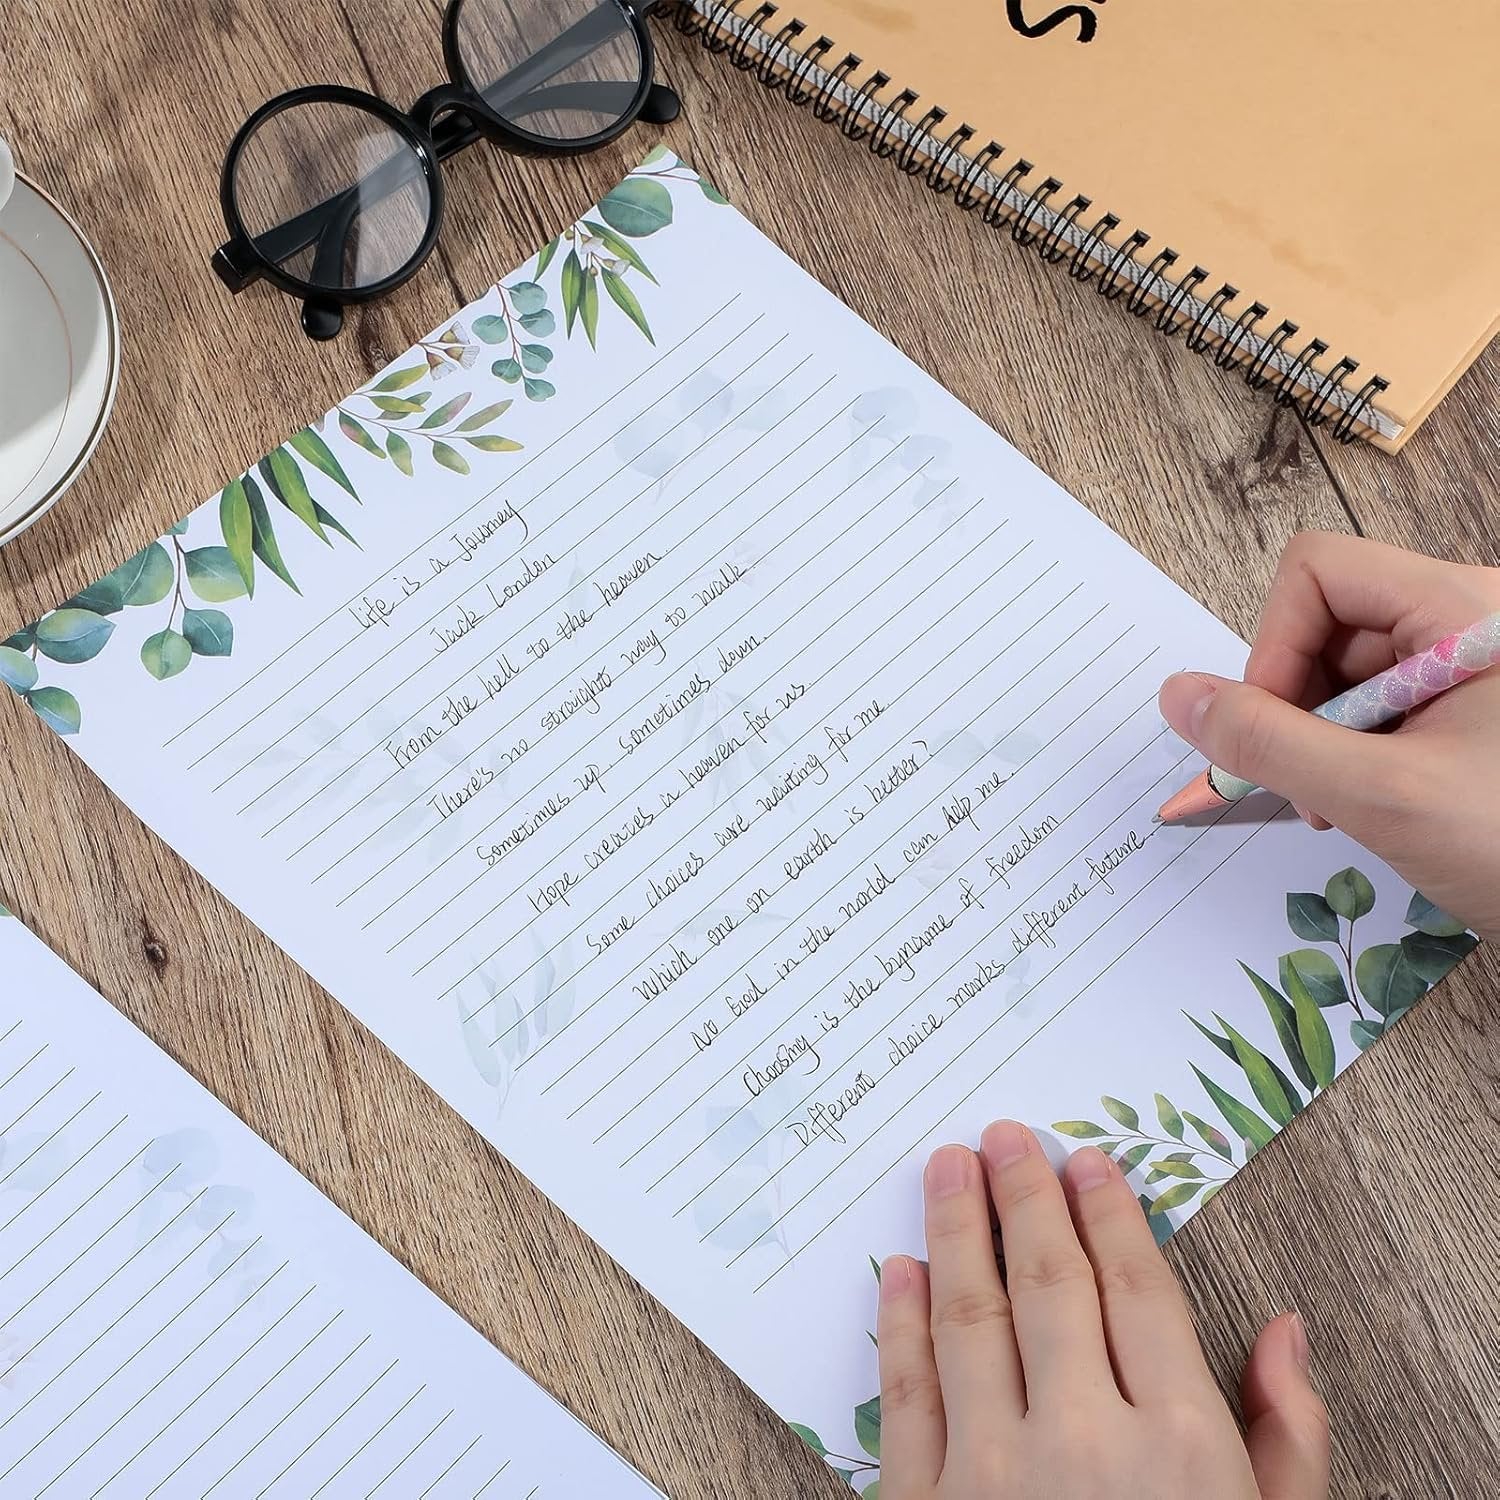 Life is a Journey
Jack London
From the hell to the heaven.
There's no straight way to walk.
Sometimes up, sometimes down.
Hope creates a heaven for us.
Some choices are waiting for me.
Which one on earth is better?
No God in the world can help me.
Choosing is the byname of freedom
Different choice marks different future.